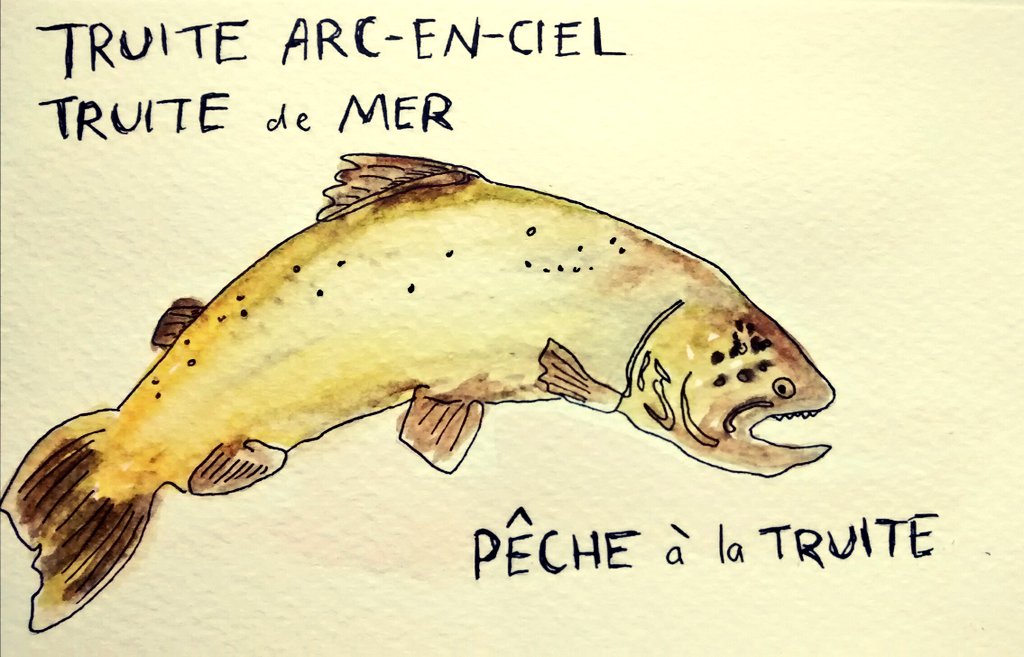 TRUITE ARC-EN-CIEL
TRUITE de MER
PÊCHE à la TRUITE